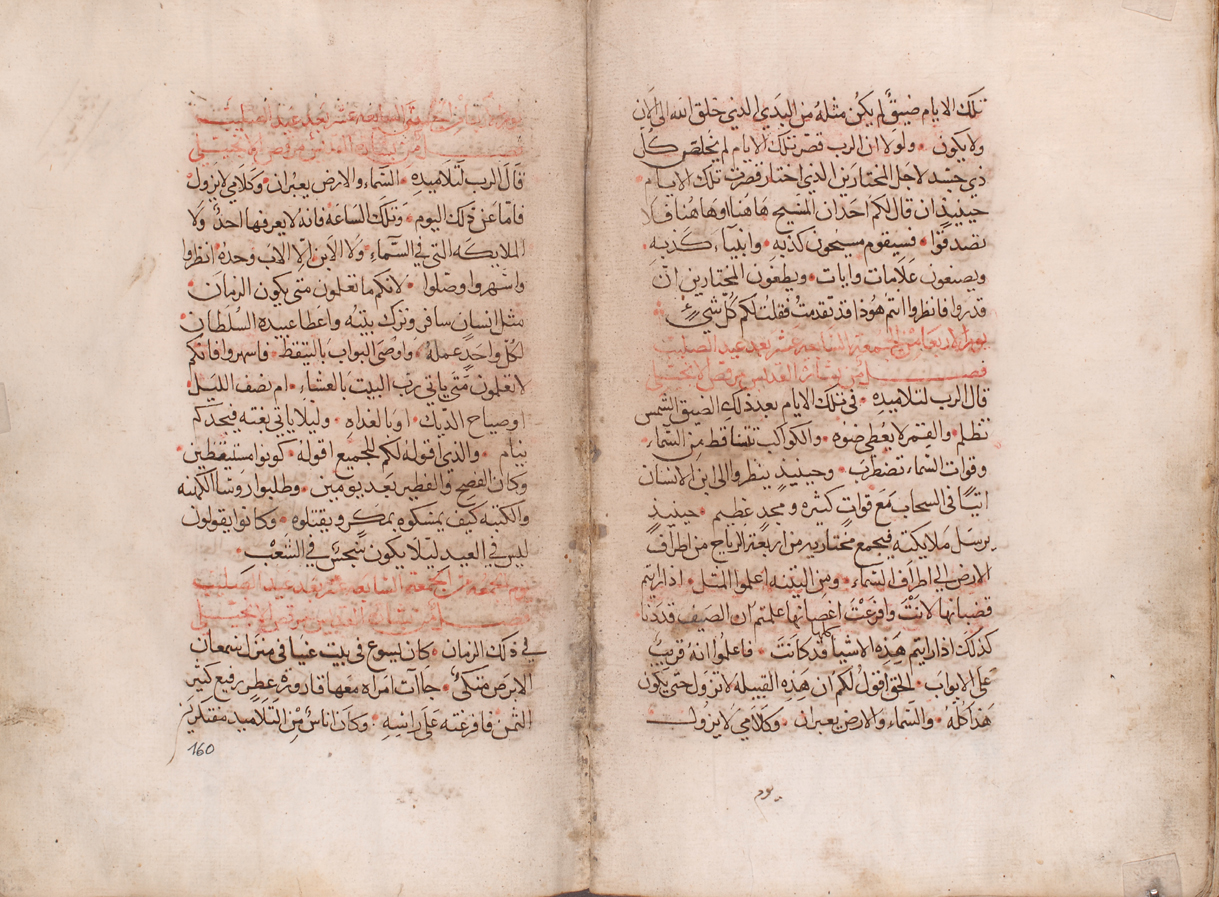 تلك الايام ضيقٌ لم يكن مثله من البدي الذي خلق الله الى الان
ولا يكون • ولولا ان الرب قصر تلك الايام لم يخلص كلُّ
ذي جسد لاجل المختارين الذي اختار قصرت تلك الايام •
حينيذٍ ان قال لكم احد ان المسيح هاهنا اوها هناك فلا
تصدقوا • فسيقوم مسيحون كذبه • وانبياء كذبه •
ويصنعون علامات وايات • ويطغون المختارين ان
قدروا فانظروا انتم هُوذا قد تقدمتُ فقلتُ لكم كُلَّ شيءٍ •
يوم الاربعا من الجمعة السابعه عشر بعد عيد الصليب
فصــل من بشارة القديس مرقص الانجيلي
قال الرب لتلاميذه • في تلك الايام بعد ذلك الضيق الشمس
تظلم • والقمر لا يعطي ضوه • والكواكب تتساقط من السماء •
وقوات السماء تضطرب • وحينيذٍ ينظروا الى ابن الانسان
اتيًا في السحاب مع قوات كثيره ومجدٍ عظيم • حينيذٍ
يرسل ملايكته فيجمع مختاريه من اربعة الرياح من اطراف
الارض الى اطراف السماء • ومن التينه اعلموا المثل • اذا رايتم
قضبانها لانتْ وافرعتْ اغصانها علمتم ان الصيف قد دنا
كذلك اذا رايتم هذه الاشيا كلها قد كانت • فاعلموا انهُ قريبٌ
على الابواب • الحق اقول لكم ان هذه القبيله لا تزول حتى يكون
هذا كُلهُ • والسماء والارض يعبران • وكلامي لا يزول
يوم
يوم الخميس من الجمعة السابعه عشر بعد عيد الصليب
فصــل من بشارة القديس مرقص الانجيلي
قال الرب لتلاميذه • السماء والارض يعبران • وكلامي لا يزول
فامّا عن ذلك اليوم • وتلك الساعه فانه لا يعرفها احدٌ ولا
الملايكه التي في السماء • ولا الابن الا الاب وحدهُ • انظروا
واسهروا وصلوا • لانكم ما تعلمون متى يكون الزمان •
مثل انسان سافر وترك بيته واعطا عبيده السلطان •
لكل واحدٍ عمله • واوصى البواب بالتيقظ • فاسهروا فانكم
لا تعلمون متى ياتي رب البيت بالعشاء • ام نصف الليل •
او صياح الديك • او بالغداه • وليلا ياتي بغته فيجدكم
نيام • والذي اقوله لكم للجميع اقولهُ • كونوا مستيقظين •
وكان الفصح والفطير بعد يومين • وطلبوا روسا الكهنه
والكتبه كيف يمسكوه بمكر ويقتلوه • وكانوا يقولون
ليس في العيد ليلا يكون سجسٌ في الشعب •
يوم الجمعه من الجمعة السابعه عشر بعد عيد الصليب
فصــل من بشارة القديس مرقص الانجيلي
في ذلك الزمان • كان يسوع في بيت عنيا في منزل سمعان
الابرص متكئ • جاات امراه معها قاروره عطر رفيع كثير
الثمن فافرغته على راسه • وكان اناسٌ من التلاميذ مفتكرين
160